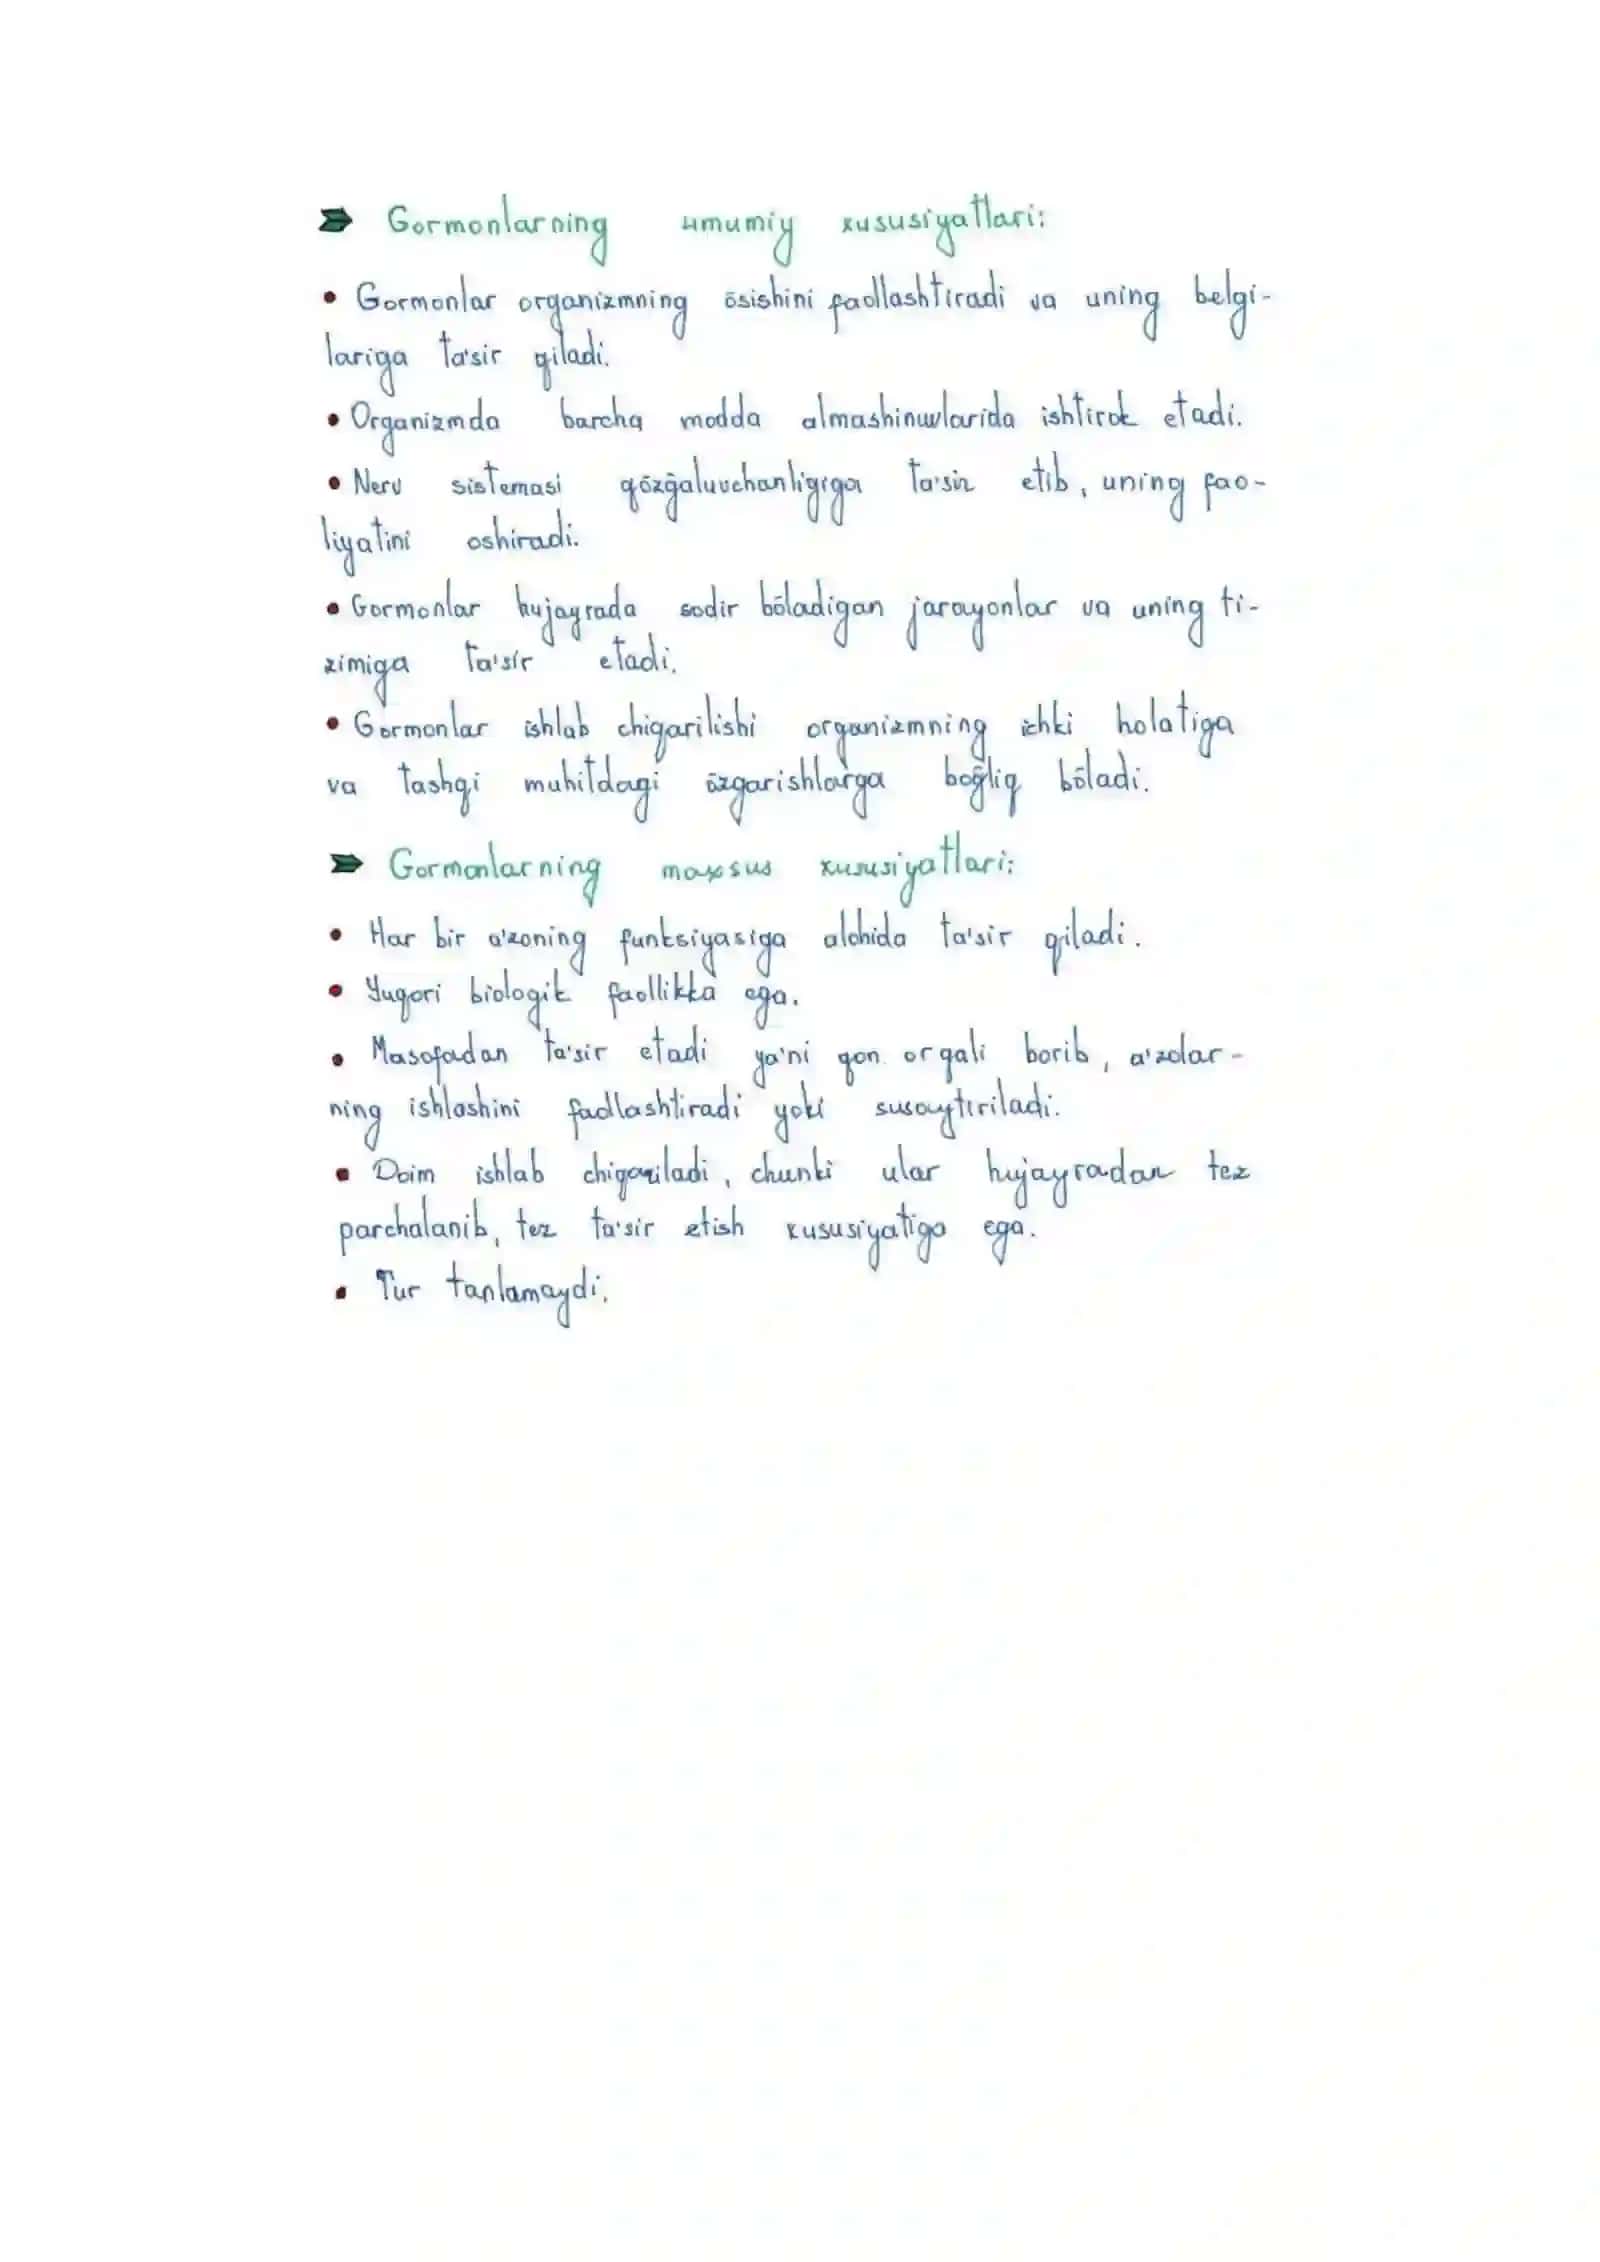 ➤ Gormonlarning umumiy xususiyatlari:
• Gormonlar organizmning ōsishini faollashtiradi va uning belgi-
lariga ta'sir qiladi.
• Organizmda barcha modda almashinuvlarida ishtirok etadi.
• Nerv sistemasi qōzḡaluvchanligiga ta'sir etib, uning fao-
liyatini oshiradi.
• Gormonlar hujayrada sodir bōladigan jarayonlar va uning ti-
zimiga ta'sir etadi.
• Gormonlar ishlab chiqarilishi organizmning ichki holatiga
va tashqi muhitdagi ōzgarishlarga boḡliq bōladi.
➤ Gormonlarning maxsus xususiyatlari:
• Har bir a'zoning funksiyasiga alohida ta'sir qiladi.
• Yuqori biologik faollikka ega.
• Masofadan ta'sir etadi ya'ni qon orqali borib, a'zolar-
ning ishlashini faollashtiradi yoki susaytiriladi.
• Doim ishlab chiqariladi, chunki ular hujayradan tez
parchalanib, tez ta'sir etish xususiyatiga ega.
• Tur tanlamaydi.